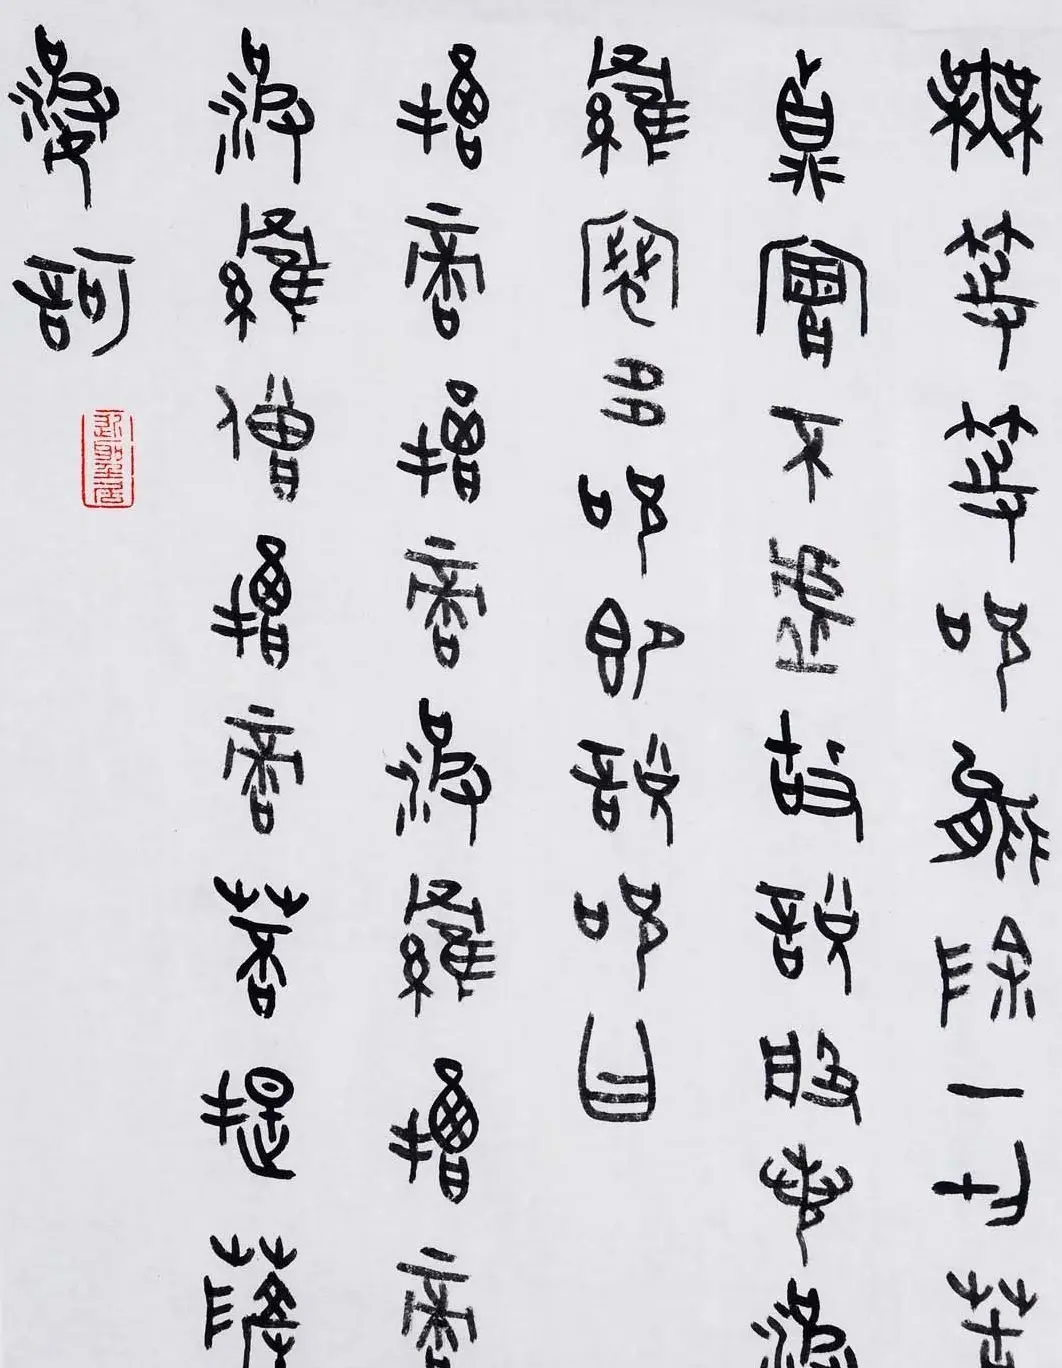 無等等呪能除一切苦
真實不虛故說般若波
羅蜜多呪即說呪曰
揭諦揭諦波羅揭諦
波羅僧揭諦菩提薩
婆訶